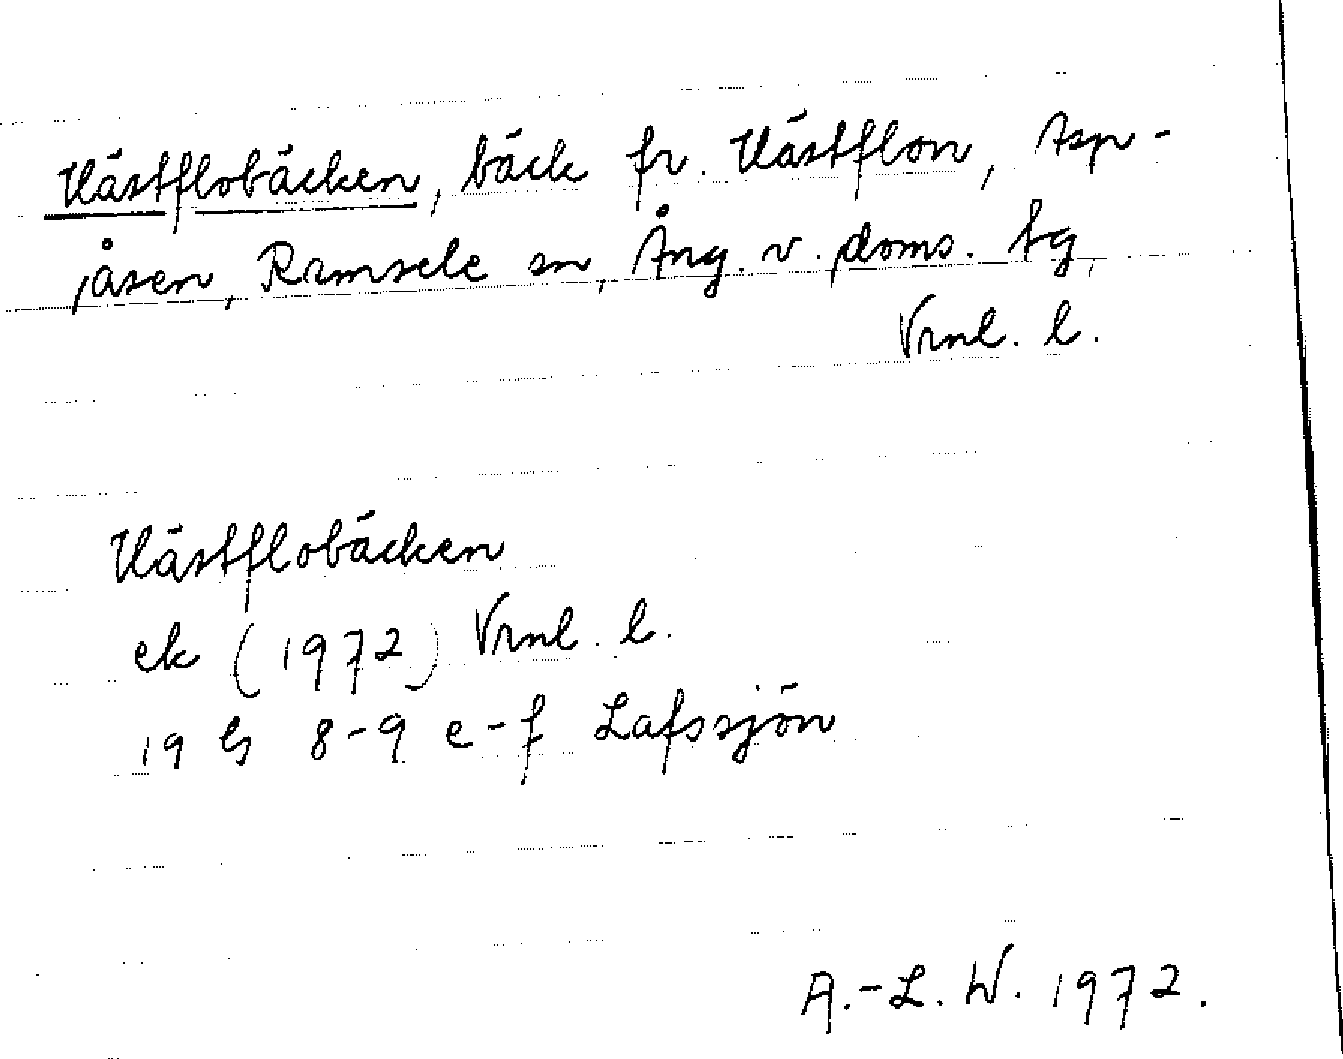 Västflobäcken, bäck fr. Västflon, Asp-
åsen, Ramsele sn, Ång. v. doms. tg,
Vrnl. l.
Västflobäcken
ek (1972) Vrnl. l.
19 G 8-9 e-f Lafssjön
A.-L. W. 1972.